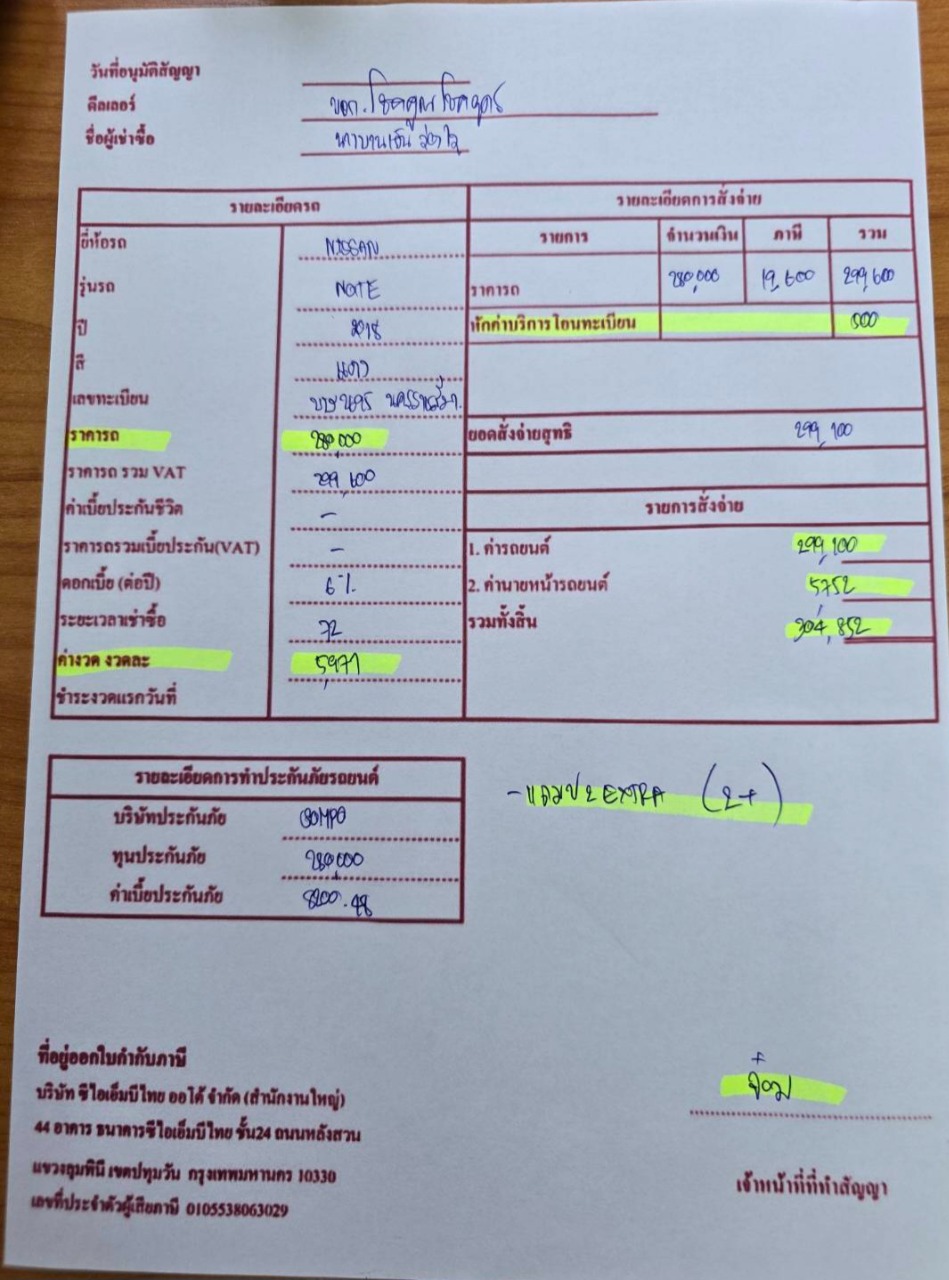 วันที่อนุมัติสัญญา
ดีลเลอร์ หจก. โชคคูณโชคอุดร
ชื่อผู้เช่าซื้อ
รายละเอียดรถ
ยี่ห้อรถ NISSAN
รุ่นรถ NOTE
ปี 2018
สี แดง
เลขทะเบียน นครราชสีมา
ราคารถ 280,000
ราคารถ รวม VAT 299,600
ค่าเบี้ยประกันชีวิต -
ราคารถรวมเบี้ยประกัน(VAT) -
ดอกเบี้ย (ต่อปี) 6%
ระยะเวลาเช่าซื้อ 72
ค่างวด งวดละ 5,971
ชำระงวดแรกวันที่
รายละเอียดการสั่งจ่าย
รายการ จำนวนเงิน ภาษี รวม
ราคารถ 280,000 19,600 299,600
หักค่าบริการโอนทะเบียน 500
ยอดสั่งจ่ายสุทธิ 299,100
รายการสั่งจ่าย
1. ค่ารถยนต์ 299,100
2. ค่านายหน้ารถยนต์ 5752
รวมทั้งสิ้น 304,852
รายละเอียดการทำประกันภัยรถยนต์
บริษัทประกันภัย SOMPO
ทุนประกันภัย 280,000
ค่าเบี้ยประกันภัย 8200.48
- แถมป 2 EXTRA (2+)
ที่อยู่ออกใบกำกับภาษี
บริษัท ซีไอเอ็มบีไทย ออโต้ จำกัด (สำนักงานใหญ่)
44 อาคาร ธนาคารซีไอเอ็มบีไทย ชั้น24 ถนนหลังสวน
แขวงลุมพินี เขตปทุมวัน กรุงเทพมหานคร 10330
เลขที่ประจำตัวผู้เสียภาษี 0105538063029
เจ้าหน้าที่ที่ทำสัญญา